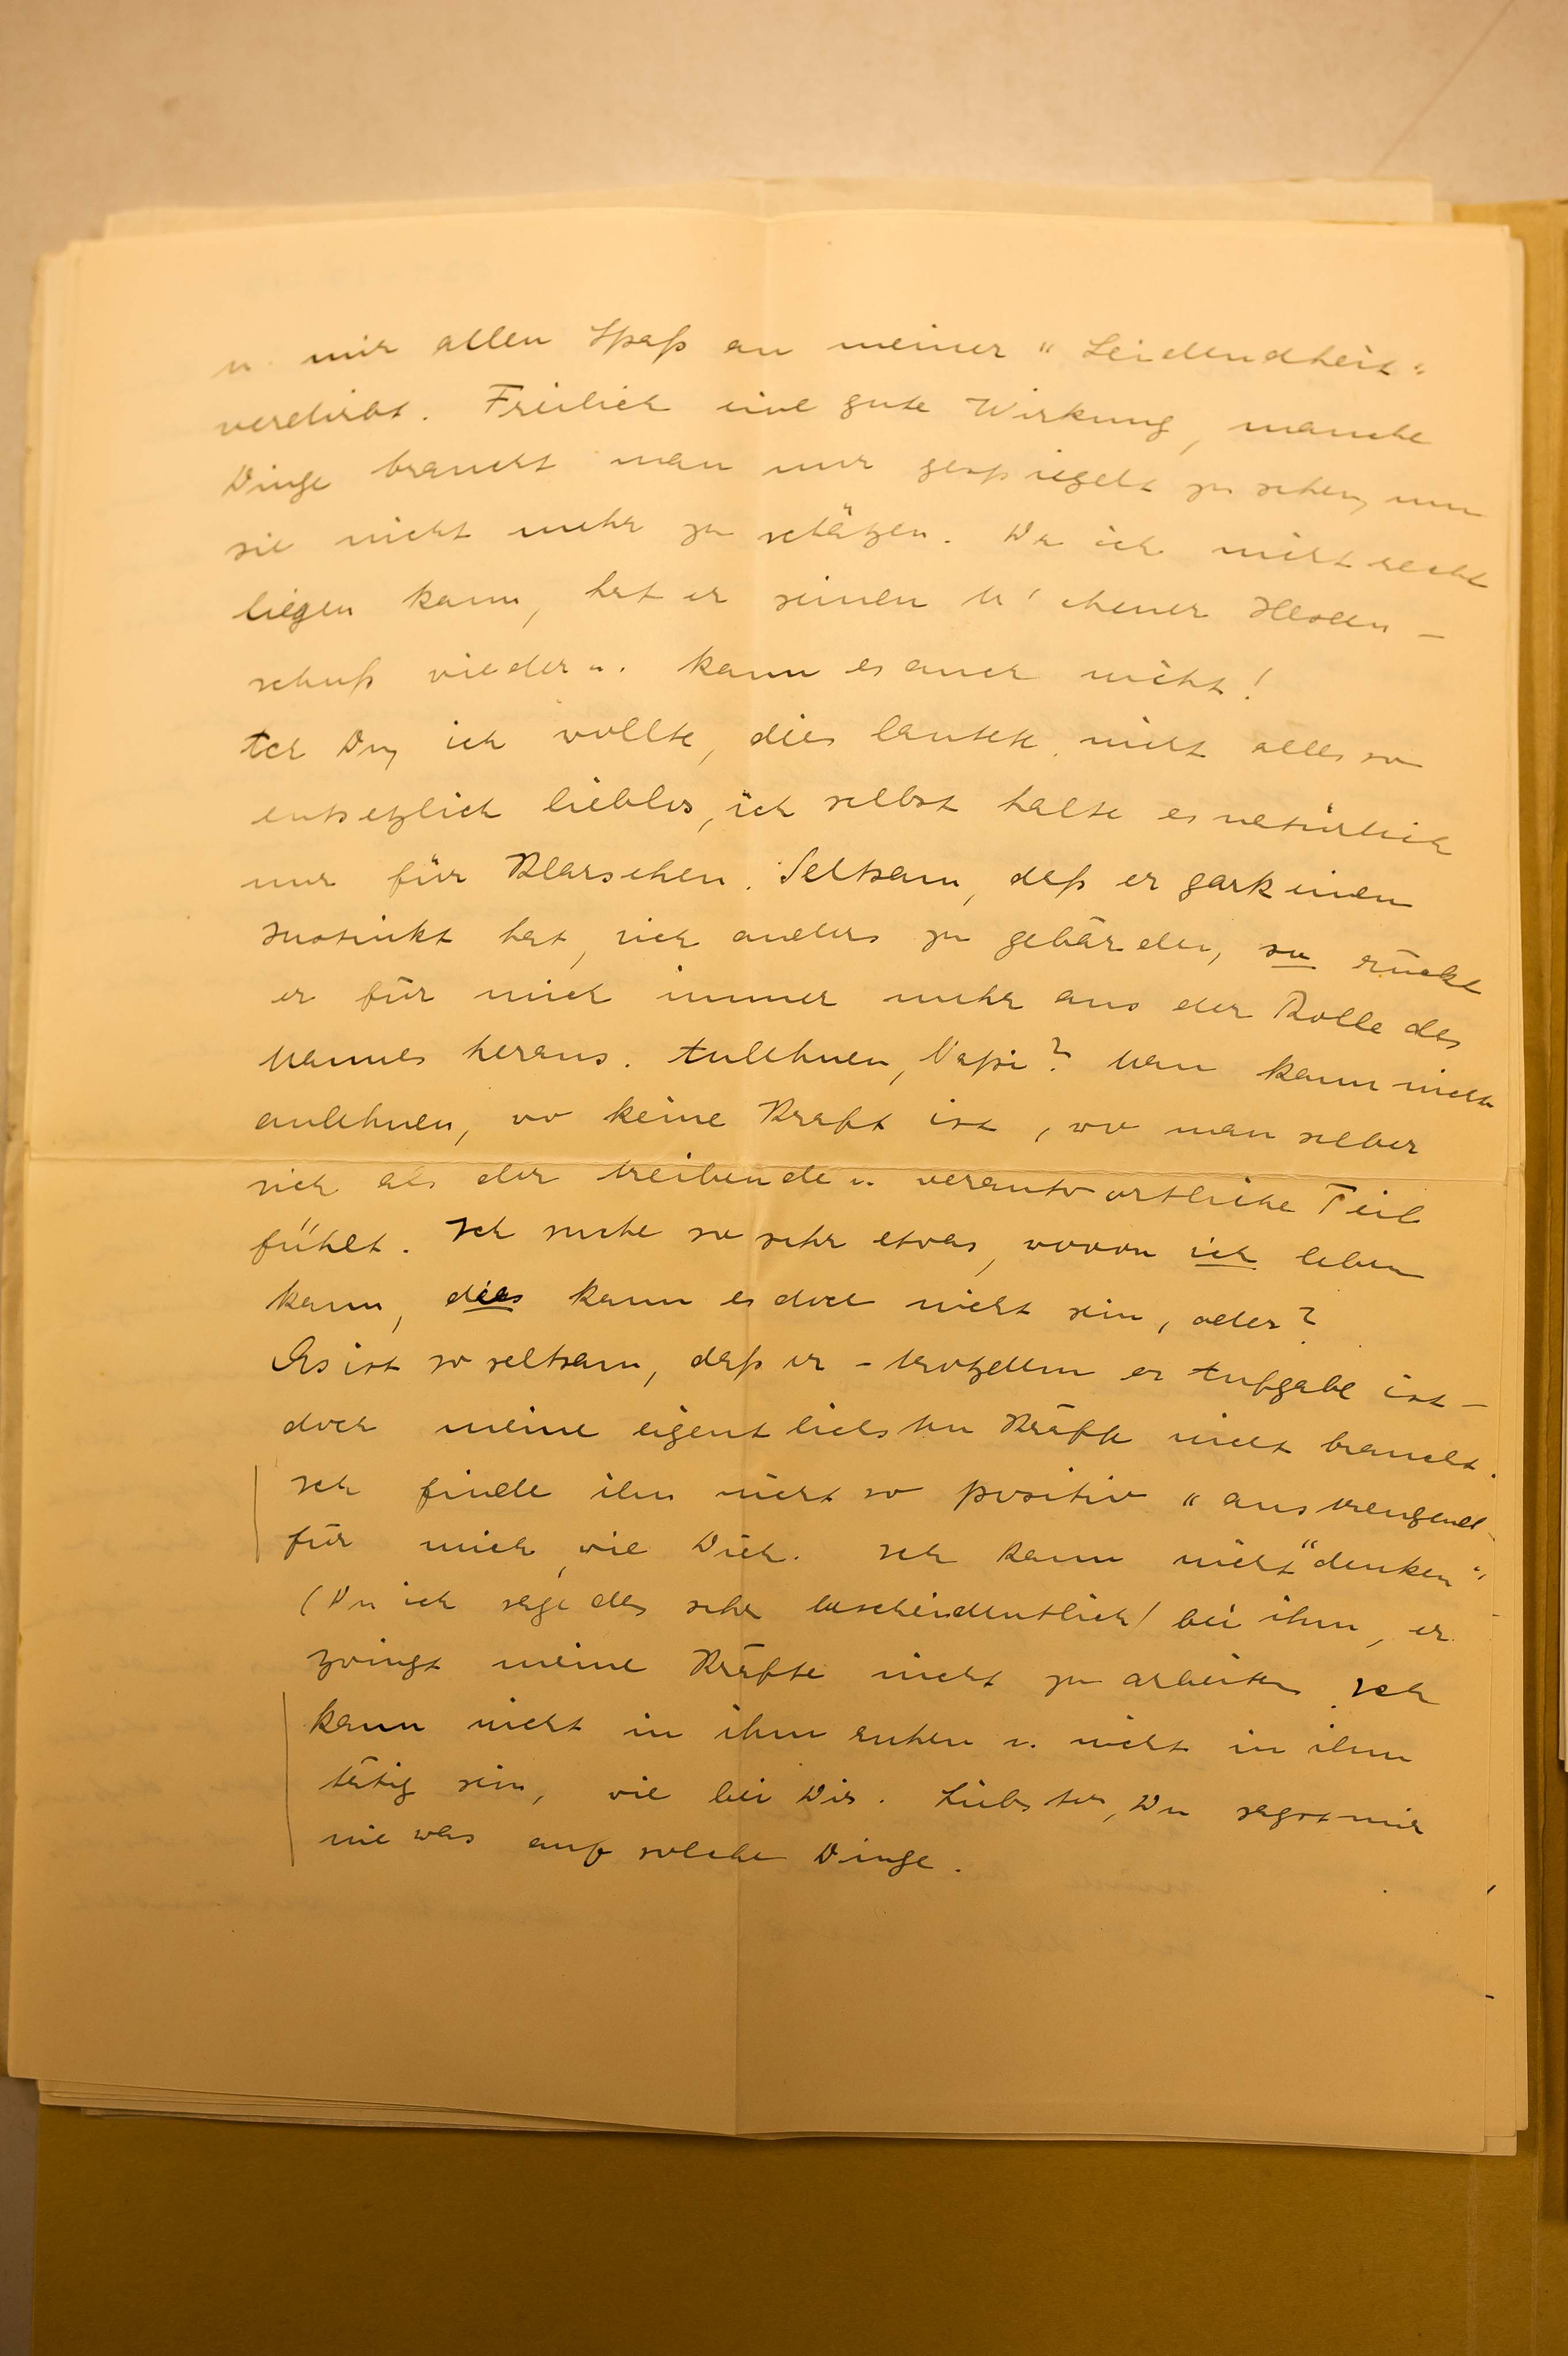 u. mir allen Spaß an meiner "Leidendheit"
verdirbt. Freilich eine gute Wirkung, manche
Dinge braucht man nur gespiegelt zu sehen, um
sie nicht mehr zu schätzen. Da ich nicht recht
liegen kann, hat er seinen M'chener Hexen-
schuß wieder u. kann es auch nicht!
Ach Du, ich wollte, dies lautete nicht alles so
entsetzlich lieblos, ich selbst halte es natürlich
nur für Klarsehen. Seltsam, daß er gar keinen
Instinkt hat, sich anders zu gebärden, so rückt
er für mich immer mehr aus der Rolle des
Mannes heraus. Anlehnen, ? Man kann nicht
anlehnen, wo keine Kraft ist, wo man selber
sich als der treibende u. verantwortliche Teil
fühlt. Ich suche so sehr etwas, wovon ich leben
kann, dies kann es doch nicht sein, oder?
Es ist so seltsam, daß er - trotzdem er Aufgabe ist -
doch meine eigentlichsten Kräfte nicht braucht.
Ich finde ihn nicht so positiv "anstrengend
für mich, wie Dich. Ich kann nicht "denken"
(Du ich sage das sehr bescheidentlich) bei ihm, er
zwingt meine Kräfte nicht zu arbeiten. Ich
kann nicht in ihm ruhen u. nicht in ihm
tätig sein, wie bei Dir. Liebster, Du sagst mir
nie was auf solche Dinge.